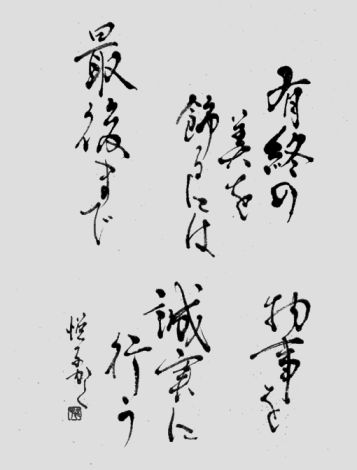 有終の
美を
飾るには
物事を
最後まで
誠実に
行う
悦子かく